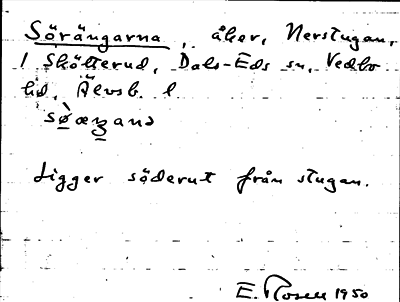 Sörängarna, åker, Nerstugan,
1 Skölterud, Dals-Eds sn, Vedbo
hd, Älvsb. l.
Ligger söderut från stugan.
E. Rosell 1950